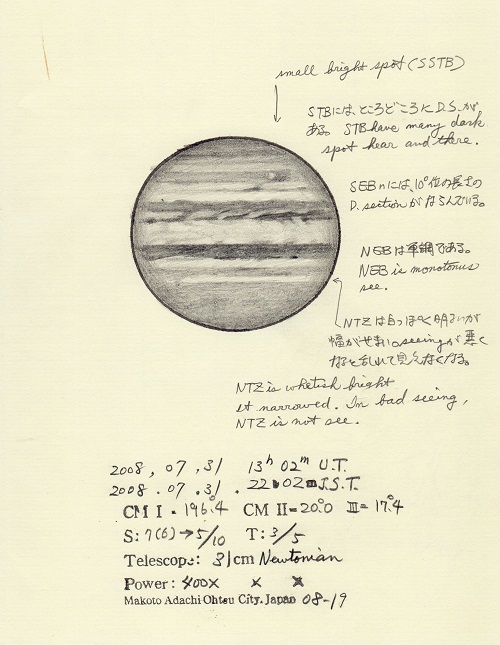 small bright spot (SSTB)
STBには、ところどころにD.S.が
ある。 STB have many dark
spot hear and there.
SEBnには、10°位の長さの
D. section がならんでいる。
NEBは単調である。
NEB is monotonus
see.
NTZは白っぽく明るいが
幅がせまい。seeingが悪く
なると乱れて見えなくなる。
NTZ is whetish bright
it narrowed. In bad seeing,
NTZ is not see.
2008 , 07 , 31 13h 02m U.T.
2008 . 07 . 31 . 22 02 J.S.T.
CM I = 196.°4 CM II = 20.°0 III = 17.°4
S: 7(6) → 5/10 T: 3/5
Telescope: 31cm Newtonian
Power: 400x x x
Makoto Adachi Ohtsu City, Japan 08-19